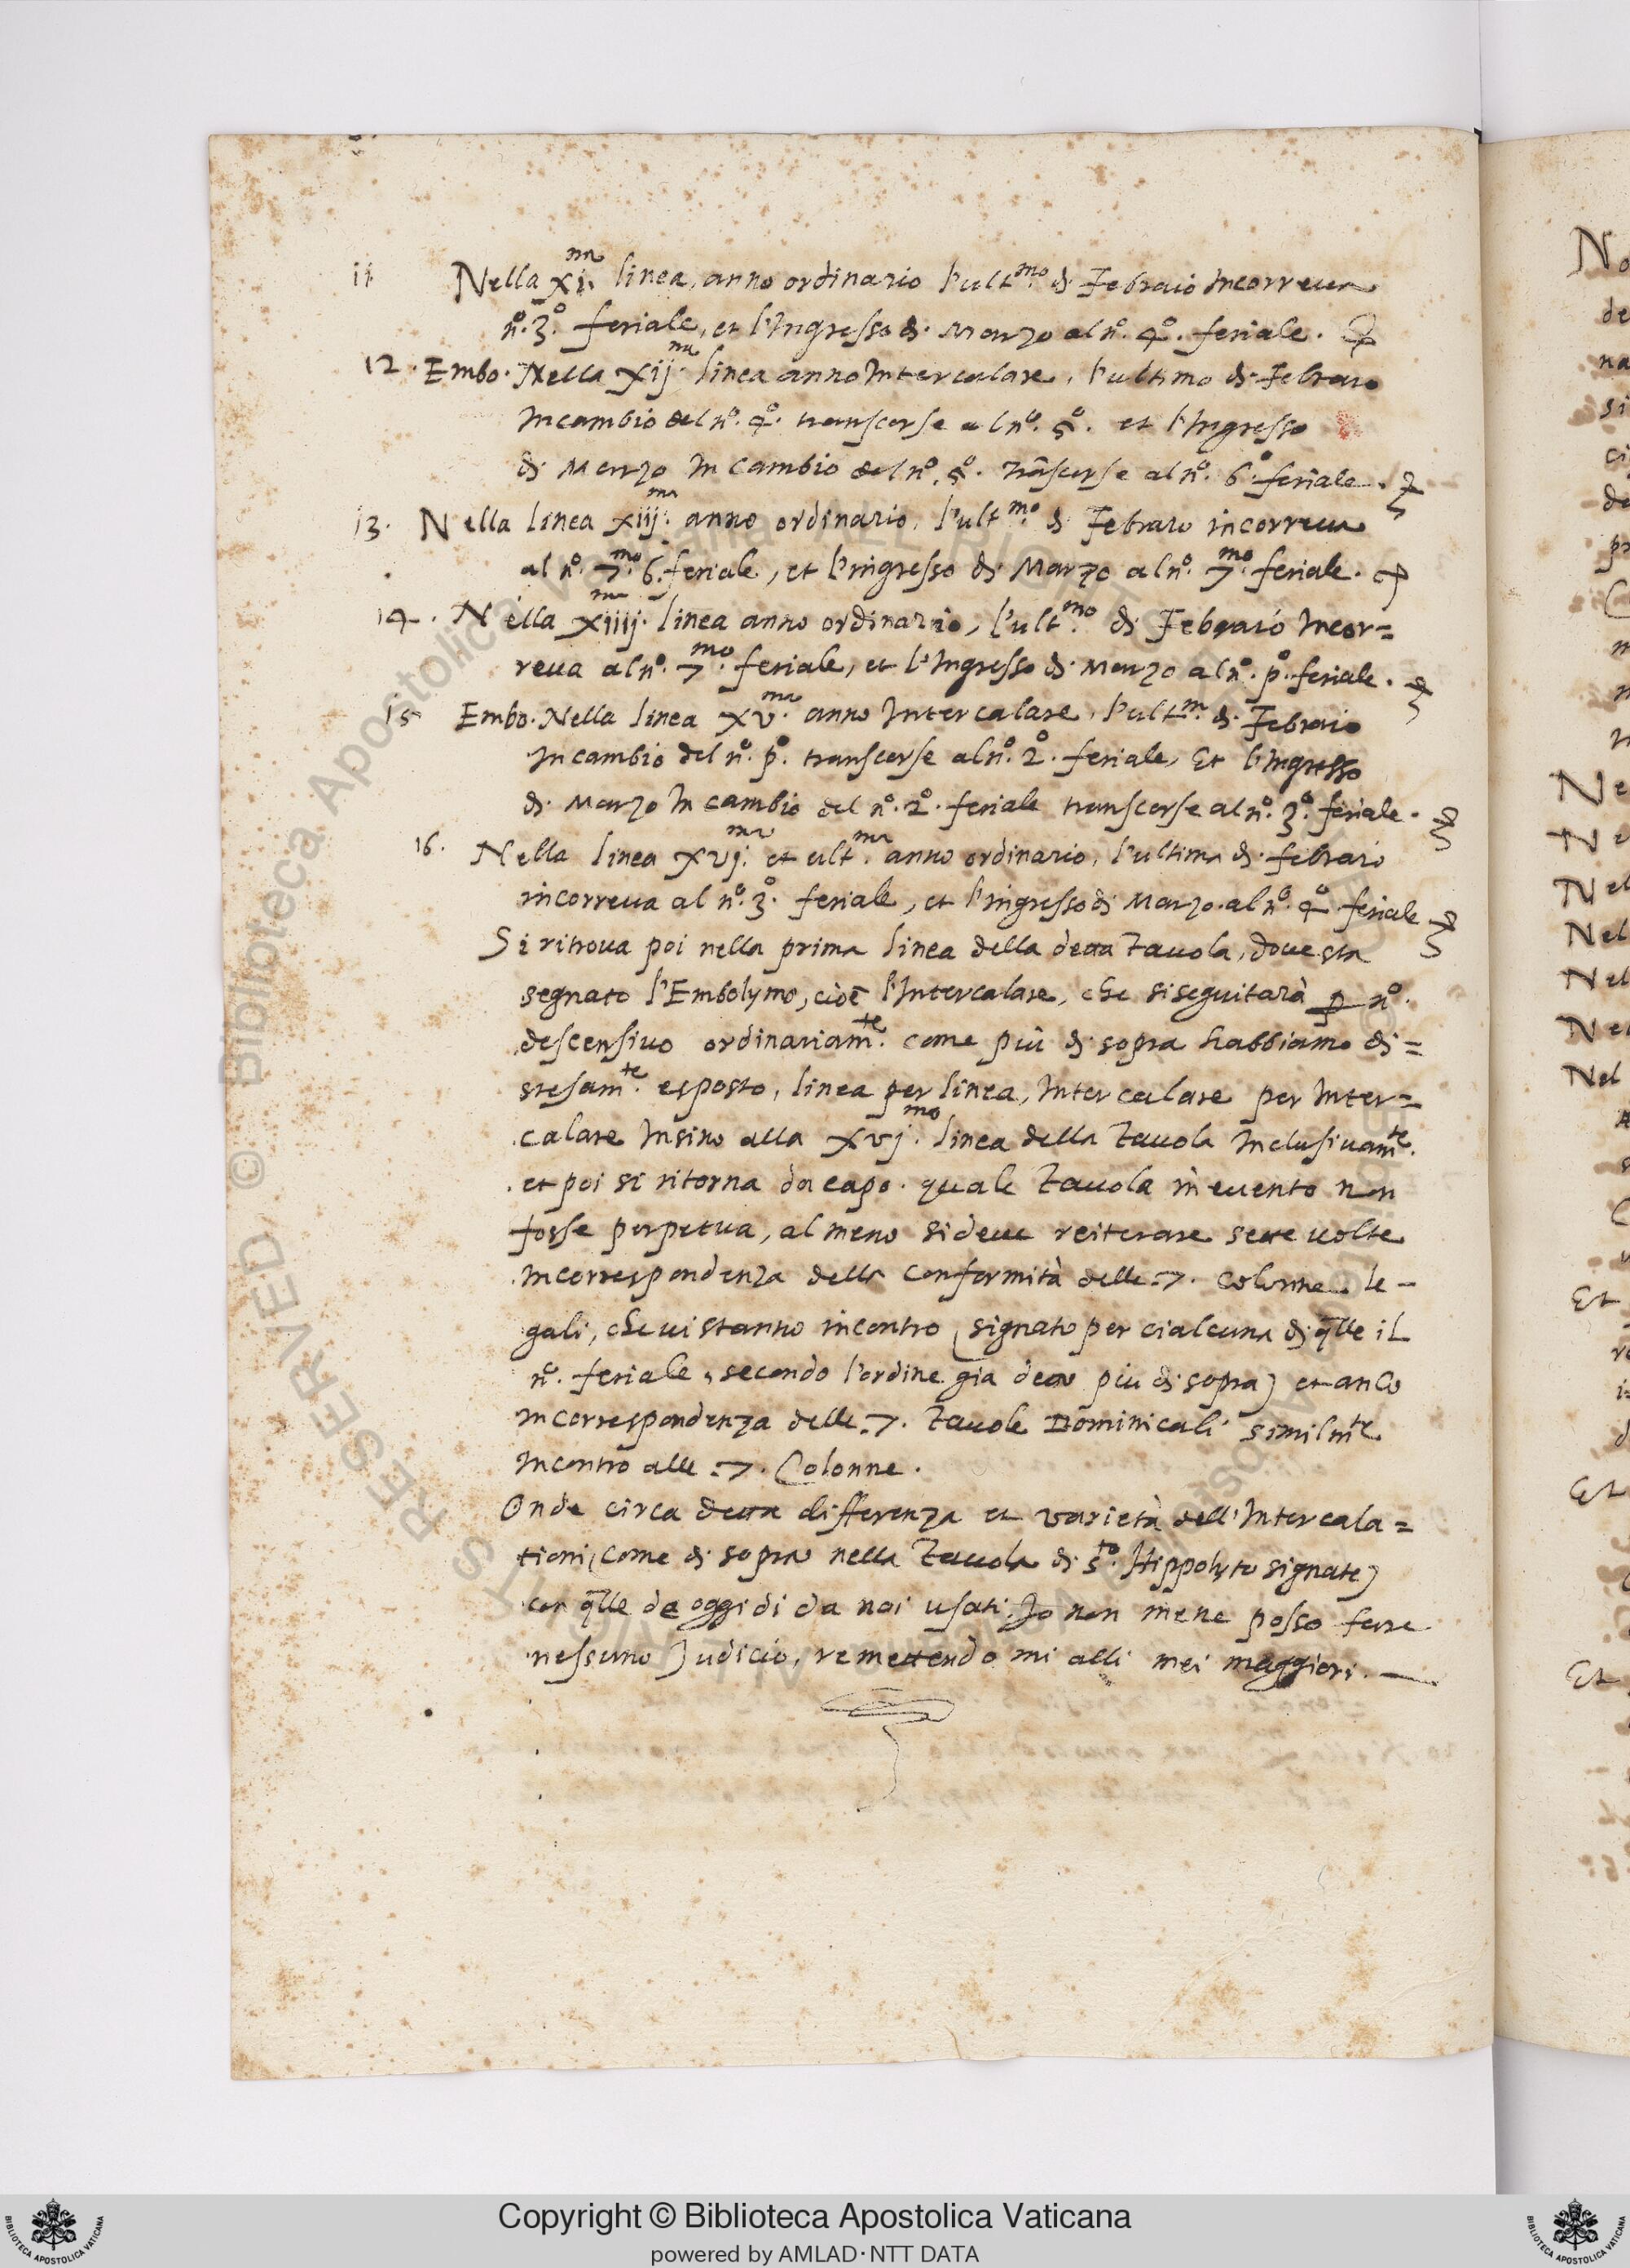 11 Nella xi.ma linea, anno ordinario l'ult.mo di Febraio Incorreua
n.o 3.o feriale, et l'Ingresso di Marzo al n.o 4.o feriale.
12. Embo. Nella xij.ma linea anno Intercalare, l'ultimo di Febraio
In cambio del n.o 4.o transcorse al n.o 5.o et l'Ingresso
di Marzo In cambio del n.o 5.o trãscorse al n.o 6.o feriale.
13. Nella linea xiij.ma anno ordinario, l'ult.mo di Febraio incorreua
al n.o 7.mo 6. feriale, et l'ingresso di Marzo al n.o 7.mo feriale.
14. Nella xiiij.ma linea anno ordinario, l'ult.mo di Febraio Incor=
reua al n.o 7.mo feriale, et l'Ingresso di Marzo al n.o p.o feriale.
15 Embo. Nella linea xv.ma anno Intercalare, l'ult.m di Febraio
In cambio del n.o p.o transcorse al n.o 2.o feriale, Et l'Ingresso
di Marzo In cambio del n.o 2.o feriale transcorse al n.o 3.o feriale.
16. Nella linea xvj.ma et ult.ma anno ordinario, l'ultima di febraio
incorreua al n.o 3.o feriale, et l'ingresso di Marzo al n.o 4.o feriale
Si ritroua poi nella prima linea della detta Tauola, doue sta
segnato l'Embolymo, cioè l'Intercalare, che si seguitarà ꝑ n.o
descensiuo ordinariam.te come più di sopra habbiamo di=
stesam.te esposto, linea per linea, Intercalare per Inter=
calare Insino alla xvj.mo linea della Tauola Inclusiuam.te
et poi si ritorna da capo. quale Tauola in euento non
fosse perpetua, al meno si deue reiterare sette uolte
In correspondenza della conformità delle .7. colonne le-
gali, che ui stanno incontro (signato per cialcuna di q̃lle il
n.o feriale, secondo l'ordine gia detto più di sopra) et anco
In correspondenza delle .7. Tauole Dominicali similm.te
Incontro alle .7. Colonne.
Onde circa detta differenza et varietà dell'Intercala=
tioni (come di sopra nella Tauola di s.to Hippolyto signate)
con q̃lle de oggi di da noi usati. Io non mene posso fare
nessuno Judicio, remettendo mi alli mei maggiori.
Copyright © Biblioteca Apostolica Vaticana
powered by AMLAD·NTT DATA